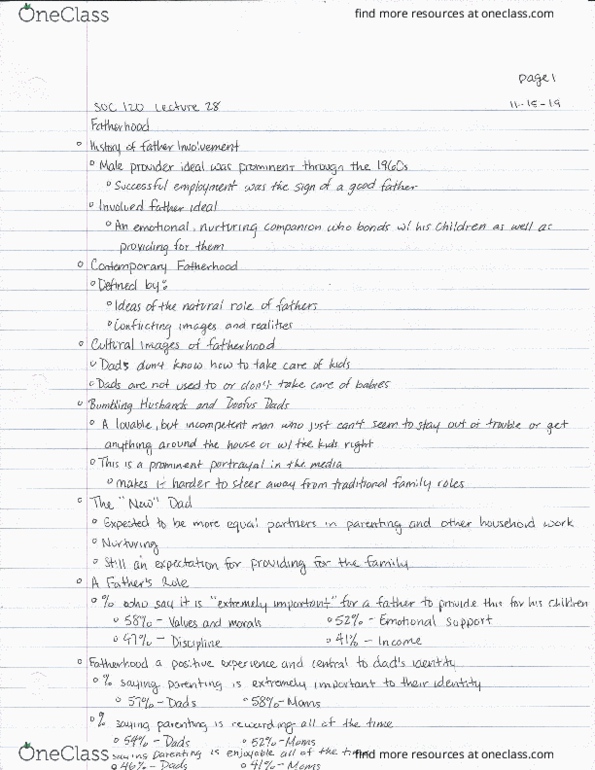 OneClass
find more resources at oneclass.com
page 1
SOC 120 Lecture 28
11-15-19
Fatherhood
History of father Involvement
Male provider ideal was prominent through the 1960s
Successful employment was the sign of a good father
Involved father ideal
An emotional, nurturing companion who bonds w/ his children as well as
providing for them
Contemporary Fatherhood
Defined by:
Ideas of the natural role of fathers
Conflicting images and realities
Cultural images of fatherhood
Dads don't know how to take care of kids
Dads are not used to or don't take care of babies
Bumbling Husbands and Doofus Dads
A lovable, but incompetent man who just can't seem to stay out of trouble or get
anything around the house or w/ the kids right
This is a prominent portrayal in the media
makes it harder to steer away from traditional family roles
The "New" Dad
Expected to be more equal partners in parenting and other household work
Nurturing
Still an expectation for providing for the family
A Father's Role
% who say it is "extremely important" for a father to provide this for his children
58% - Values and morals 52% - Emotional support
47% - Discipline 41% - Income
Fatherhood a positive experience and central to dad's identity
% saying parenting is extremely important to their identity
57% - Dads 58% - Moms
% saying parenting is rewarding all of the time
54% - Dads 52% - Moms
saying parenting is enjoyable all of the time
46% - Dads 41% - Moms
OneClass
find more resources at oneclass.com